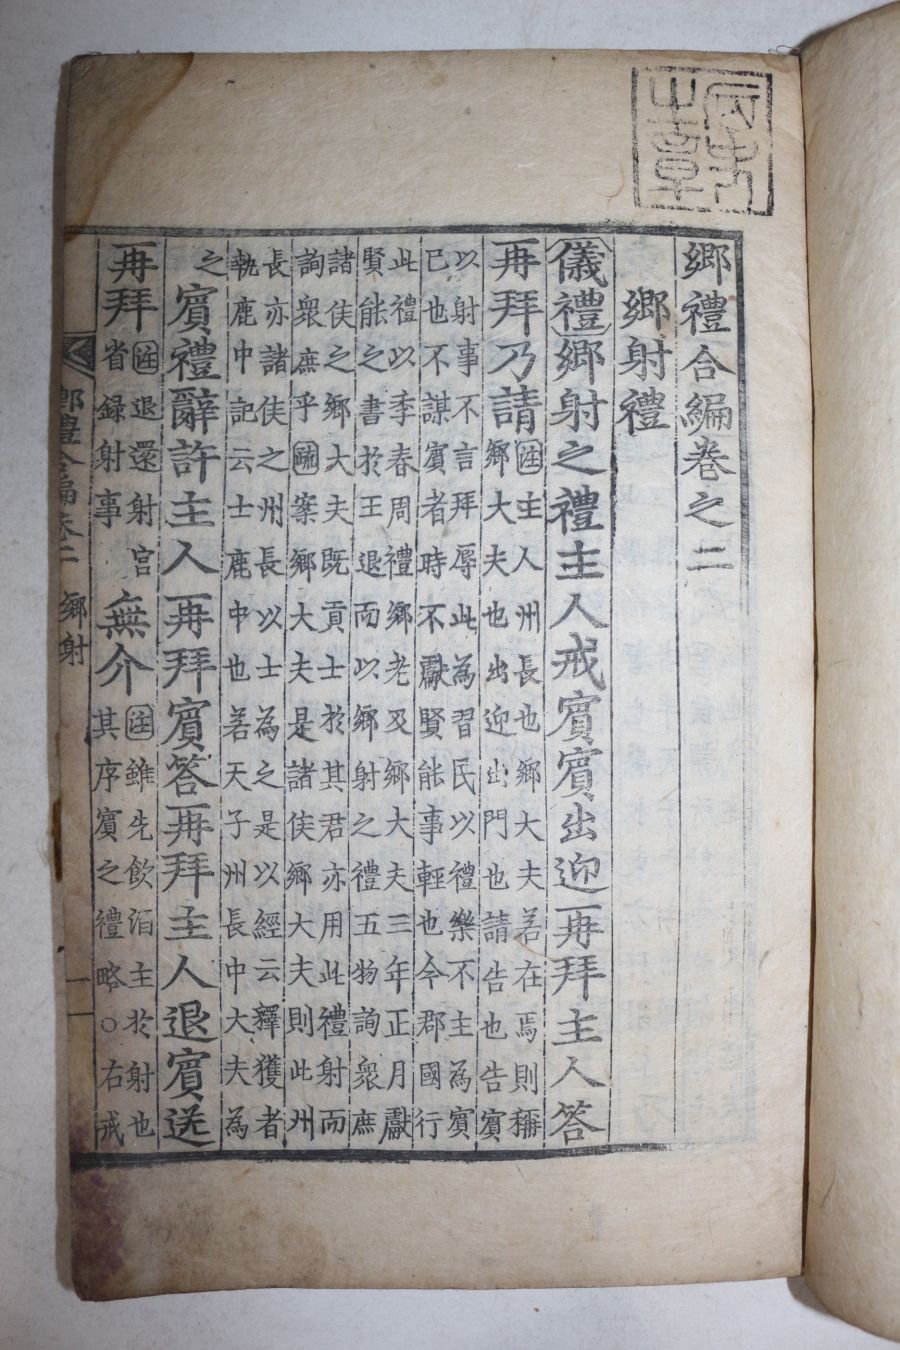 之章
鄕禮合編卷之二
鄕射禮
儀禮鄕射之禮主人戒賓賓出迎再拜主人答
再拜乃請
注主人州長也鄕大夫若在焉則稱
鄕大夫也出迎出門也請告也告賓
以射事不言拜辱此為習民以禮樂不主為賓
已也不謀賓者時不獻賢能事輕也今郡國行
此禮以季春周禮鄕老及鄕大夫三年正月獻
賢能之書於王退而以鄕射之禮五物詢衆庶
諸侯之鄕大夫既貢士於其君亦用此禮射而
詢衆庶乎疏案鄕大夫是諸侯鄕大夫則此州
長亦諸侯之州長以士為之是以經云釋獲者
執鹿中記云士鹿中也若天子州長中大夫為
之賓禮辭許主人再拜賓答再拜主人退賓送
再拜
注退還射宮
省録射事
無介
注雖先飮酒主於射也
其序賓之禮略○右戒
鄕禮合編卷二 鄕射 一